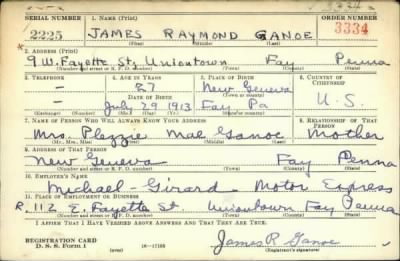 3334
SERIAL NUMBER 1. NAME (Print) ORDER NUMBER
2225 JAMES RAYMOND GANOE 3334
(First) (Middle) (Last)
2. ADDRESS (Print)
9 W. Fayette St., Uniontown Fay Penna
(Number and street or R. F. D. number) (Town) (County) (State)
3. TELEPHONE 4. AGE IN YEARS 5. PLACE OF BIRTH 6. COUNTRY OF CITIZENSHIP
- 27 New Geneva
DATE OF BIRTH (Town or county)
- July 29 1913 Fay Pa U. S.
(Exchange) (Number) (Mo.) (Day) (Yr.) (State or country)
7. NAME OF PERSON WHO WILL ALWAYS KNOW YOUR ADDRESS 8. RELATIONSHIP OF THAT PERSON
Mrs. Plezzie Mae Ganoe Mother
(Mr., Mrs., Miss) (First) (Middle) (Last)
9. ADDRESS OF THAT PERSON
New Geneva Fay Penna
(Number and street or R. F. D. number) (Town) (County) (State)
10. EMPLOYER'S NAME
Michael-Girard Motor Express
11. PLACE OF EMPLOYMENT OR BUSINESS
R. 112 E. Fayette St Uniontown Fay Penna
(Number and street or R. F. D. number) (Town) (County) (State)
I AFFIRM THAT I HAVE VERIFIED ABOVE ANSWERS AND THAT THEY ARE TRUE.
REGISTRATION CARD
D. S. S. Form 1 16-17105 James R. Ganoe
(Registrant's signature)